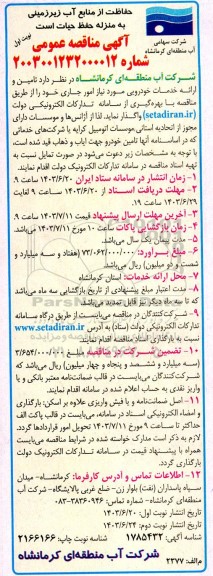 حفاظت از منابع آب زیرزمینی
به منزله حفظ حیات است
شرکت سهامی
آب منطقه‌ای کرمانشاه
نوبت اول
آگهی مناقصه عمومی
شماره ۲۰۰۳۰۰۱۲۳۲۰۰۰۰۱۲
شرکت آب منطقه‌ای کرمانشاه در نظر دارد تامین و
ارائه خدمات خودرویی مورد نیاز امور جاری خود را از طریق
مناقصه با بهره‌گیری از سامانه تدارکات الکترونیکی دولت
(setadiran.ir) واگذار نماید. لذا از آژانس‌ها و موسسات دارای
مجوز از اتحادیه استانی موسسات اتومبیل کرایه یا شرکت‌های خدماتی
که در اساسنامه آنها تامین خودرو جهت ایاب و ذهاب قید شده است
با توجه به مشخصات زیر دعوت می‌شود در صورت تمایل نسبت به
تهیه اسناد مناقصه در سامانه تدارکات الکترونیک دولت اقدام نمایند.
۱- زمان انتشار در سامانه ستاد ایران ۱۴۰۳/۶/۲۰ ساعت ۹
۲- مهلت دریافت اسناد از ۱۴۰۳/۶/۲۰ ساعت ۹ لغایت
۱۴۰۳/۶/۲۹ ساعت ۱۹.
۳- آخرین مهلت ارسال پیشنهاد قیمت ۱۴۰۳/۷/۱۱ ساعت ۹
۴- زمان بازگشایی پاکات ساعت ۱۰ مورخ ۱۴۰۳/۷/۱۱ می‌باشد.
۵- مدت قرارداد: یک سال می‌باشد.
۶- مبلغ برآورد: ۷۳/۰۶۲/۰۰۰/۰۰۰ (هفتاد و سه میلیارد و
شصت و دو میلیون) ریال می‌باشد
۷- محل ارائه خدمات: استان کرمانشاه
۸- مدت اعتبار مبلغ پیشنهادی از تاریخ بازگشایی سه ماه می‌باشد
که تا سه ماه دیگر نیز قابل تمدید می‌باشد.
۹- شرکت‌کنندگان در مناقصه می‌بایست از طریق درگاه سامانه
تدارکات الکترونیکی دولت (ستاد) به آدرس www.setadiran.ir
نسبت به بارگذاری اسناد مناقصه اقدام نمایند.
۱۰- تضمین شرکت در مناقصه مبلغ ۳/۶۵۴/۰۰۰/۰۰۰
(سه میلیارد و ششصد و پنجاه و چهار میلیون) ریال می‌باشد که
شرکت‌کنندگان می‌بایست در قالب ضمانت‌نامه معتبر بانکی و یا
واریز نقدی به حساب اعلام شده در سامانه اقدام نمایند.
۱۱- اصل ضمانت‌نامه و یا فیش واریزی علاوه بر اسکن، بارگذاری
و امضاء الکترونیکی اسناد در سامانه، می‌بایست در قالب پاکت الف
حداکثر تا ساعت ۹ مورخ ۱۴۰۳/۷/۱۱ تحویل امور قراردادها گردد.
لازم به ذکر است مدارک خواسته شده در شرایط مناقصه می‌بایست
همراه با پیشنهاد قیمت در سامانه تدارکات الکترونیک دولت
بارگذاری گردد.
۱۲- اطلاعات تماس و آدرس کارفرما: کرمانشاه- میدان
سپاه پاسداران (نفت) بلوار زن- ضلع غربی پالایشگاه- شرکت آب
منطقه‌ای کرمانشاه- شماره تماس: ۳۸۳۶۰۹۴۶-۰۸۳
تاریخ انتشار نوبت اول: ۱۴۰۳/۶/۲۰
تاریخ انتشار نوبت دوم: ۱۴۰۳/۶/۲۴
شناسه آگهی: ۱۷۸۵۴۳۲ شناسه نوبت چاپ: ۲۱۶۶۱۶۶
شرکت آب منطقه‌ای کرمانشاه
م الف: ۲۳۷۷